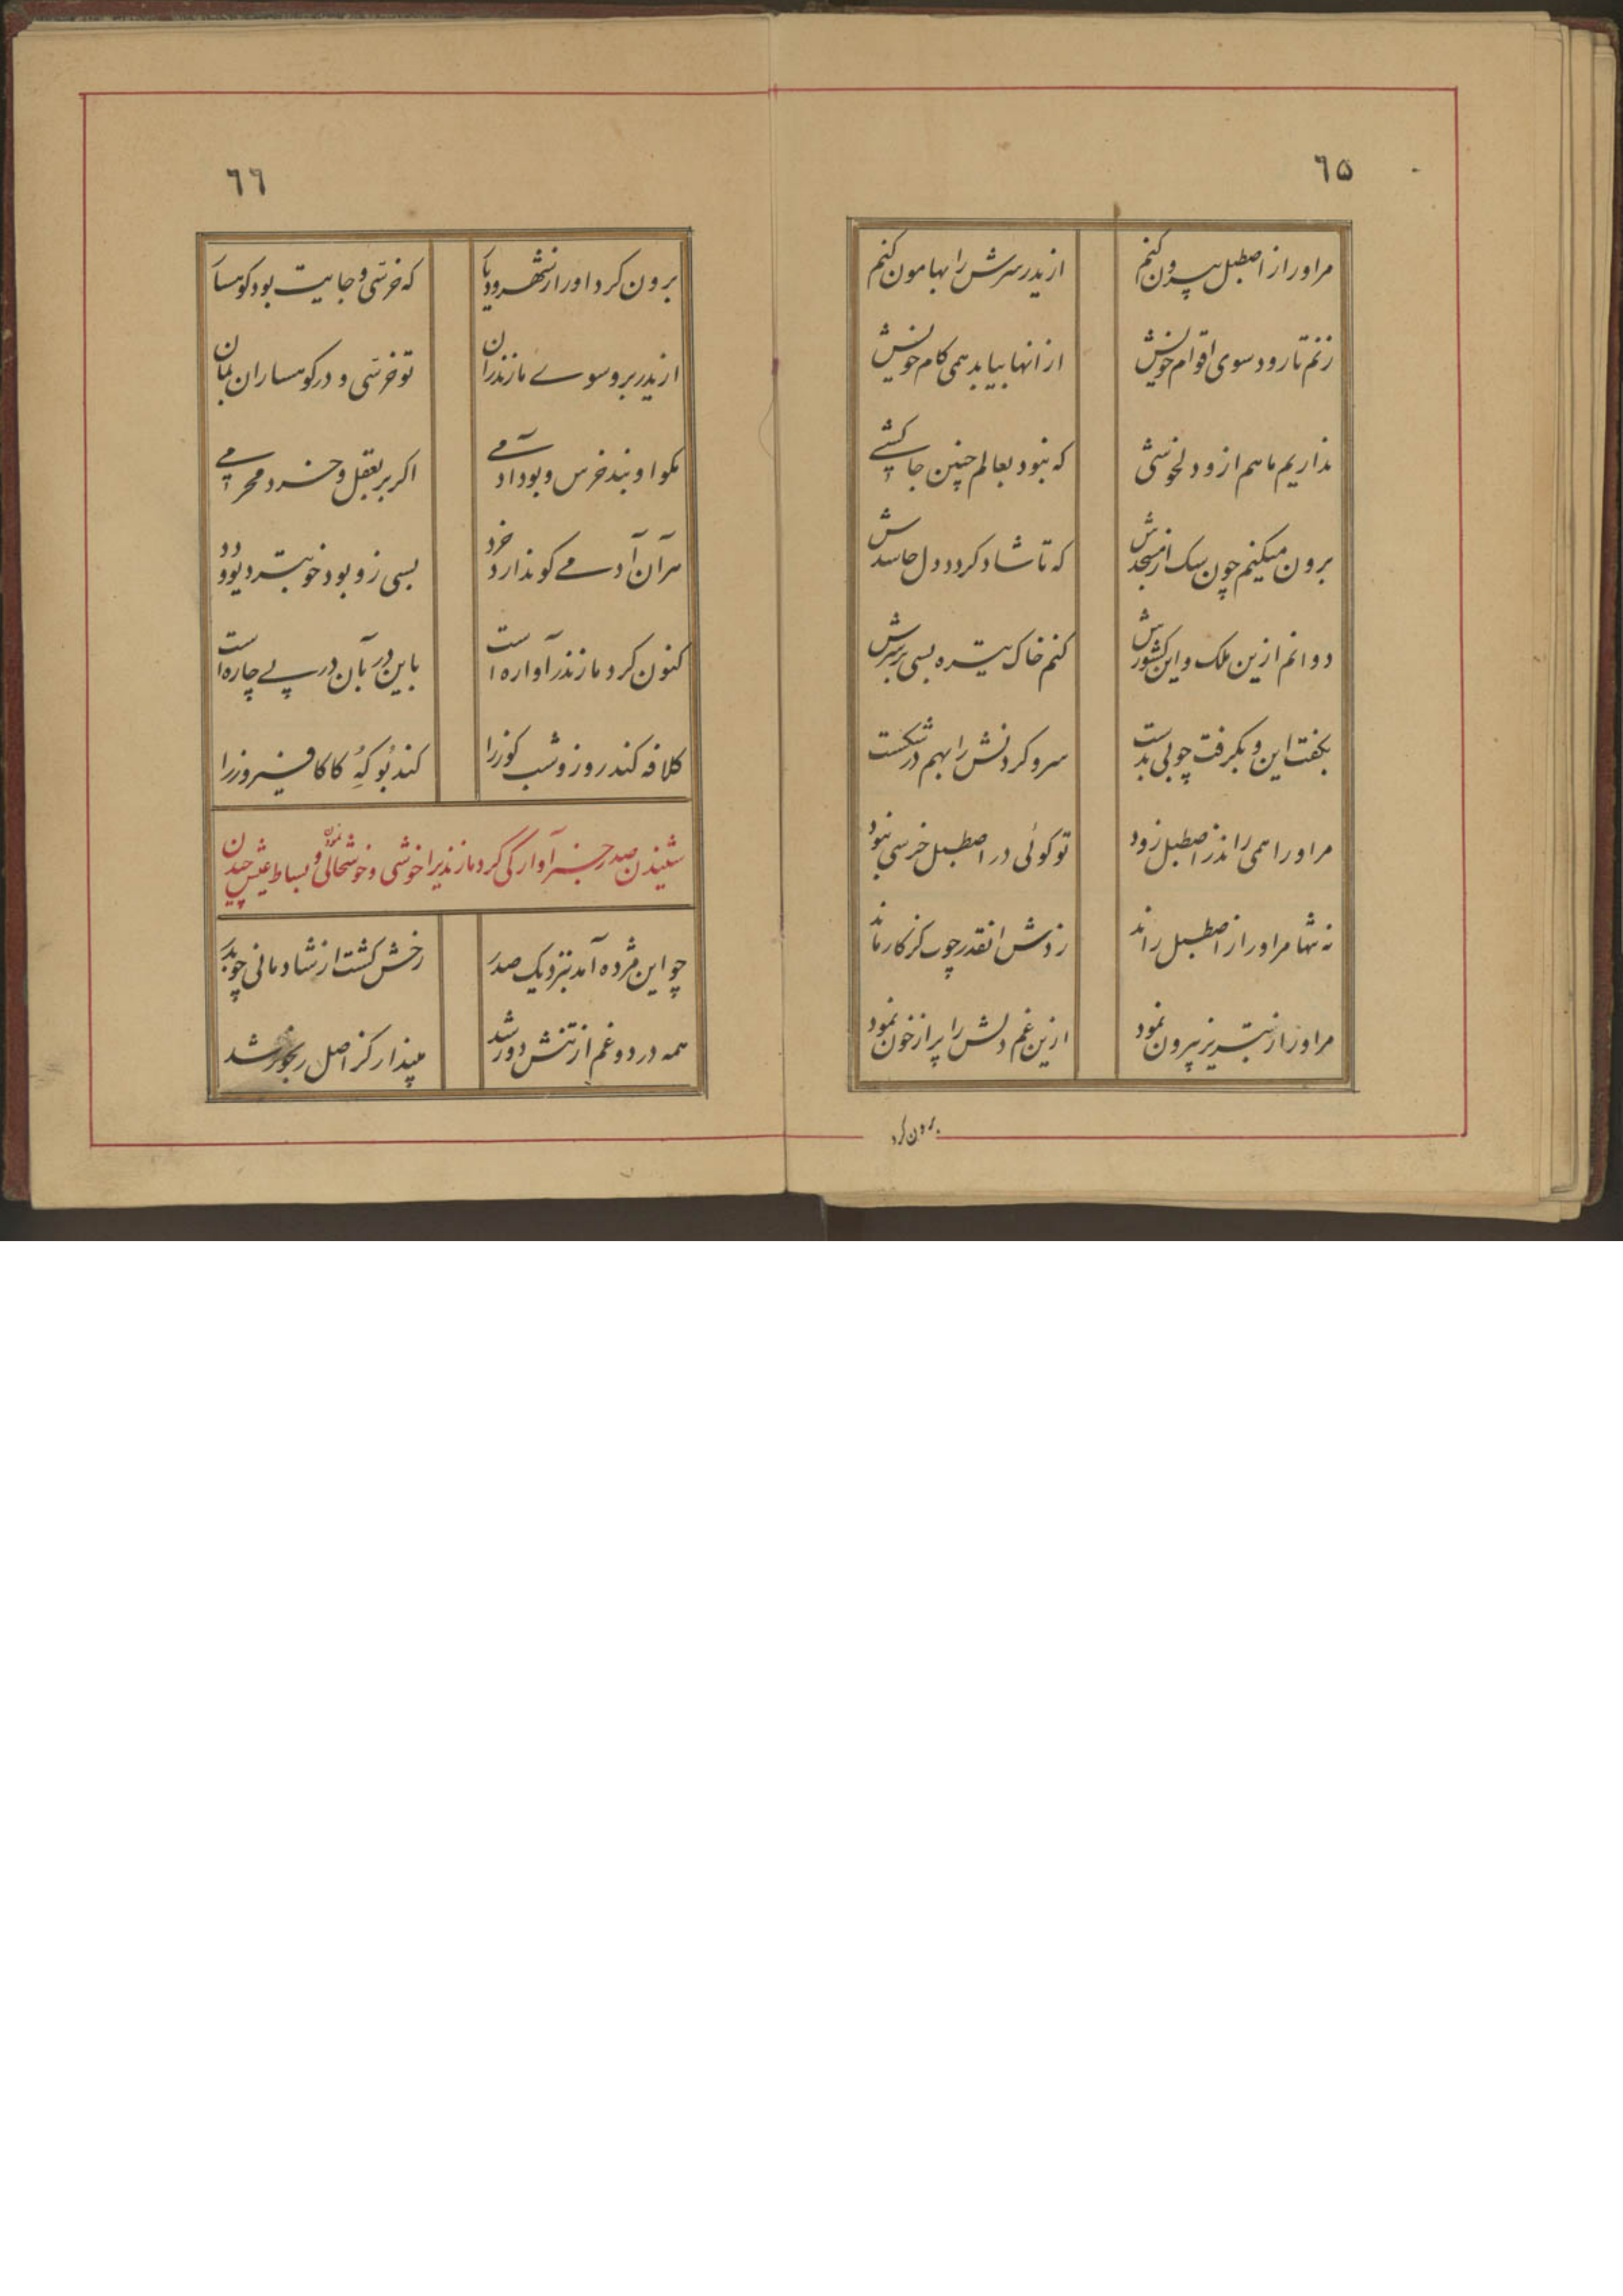 ٦٥
مر او را ز اصطبل بیرون کنم
از یدر سرش را بهامون کنم
زنم تا رود سوی اقوام خویش
از انها بیابد همی کام خویش
نداریم ما هم ازو دلخوشی
که نبود بعالم چنین جاکشی
برون میکنم چون سک از مسجدش
که تا شاد کردد دل حاسدش
دوانم ازین ملک و این کشورش
کنم خاک تیره بسی بر سرش
بکفت این و بکرفت چوبی بدست
سر و کردنش را بهم در شکست
مر او را همی راند ز اصطبل زود
تو کوئی در اصطبل خرسی نبود
نه تنها مر او را ز اصطبل راند
زدش انقدر چوب کز کار ماند
مر او را ز تبریز بیرون نمود
ازین غم دلش را پر از خون نمود
برون کرد
٦٦
برون کرد او را ز شهر و دیار
که خرسی و جایت بود کوهسار
از یدر برو سوی مازندران
تو خرسی و در کوهساران بمان
مکو او بند خرس و بود ادمی
اکر بر بعقل و خرد محرمی
هر آن آدمی کو ندارد خرد
بسی زو بود خوبتر دیو و دد
کنون کرد مازندر آواره است
باین در بآن در پی چاره است
کلافه کند روز و شب کوز را
کند بو که کاکا فیروز را
شنیدن صدر خبر آوارکی کرد مازندیرا خوشی و خوشحالی نمودن و بساط عیش چیدن
چو این مژده آمد بنزدیک صدر
رخش کشت از شادمانی چو بدر
همه درد و غم از تنش دور شد
مپندار کز اصل رنجور شد